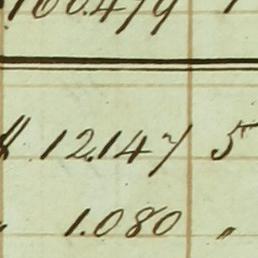 160.479
12.147 5
1.080 "